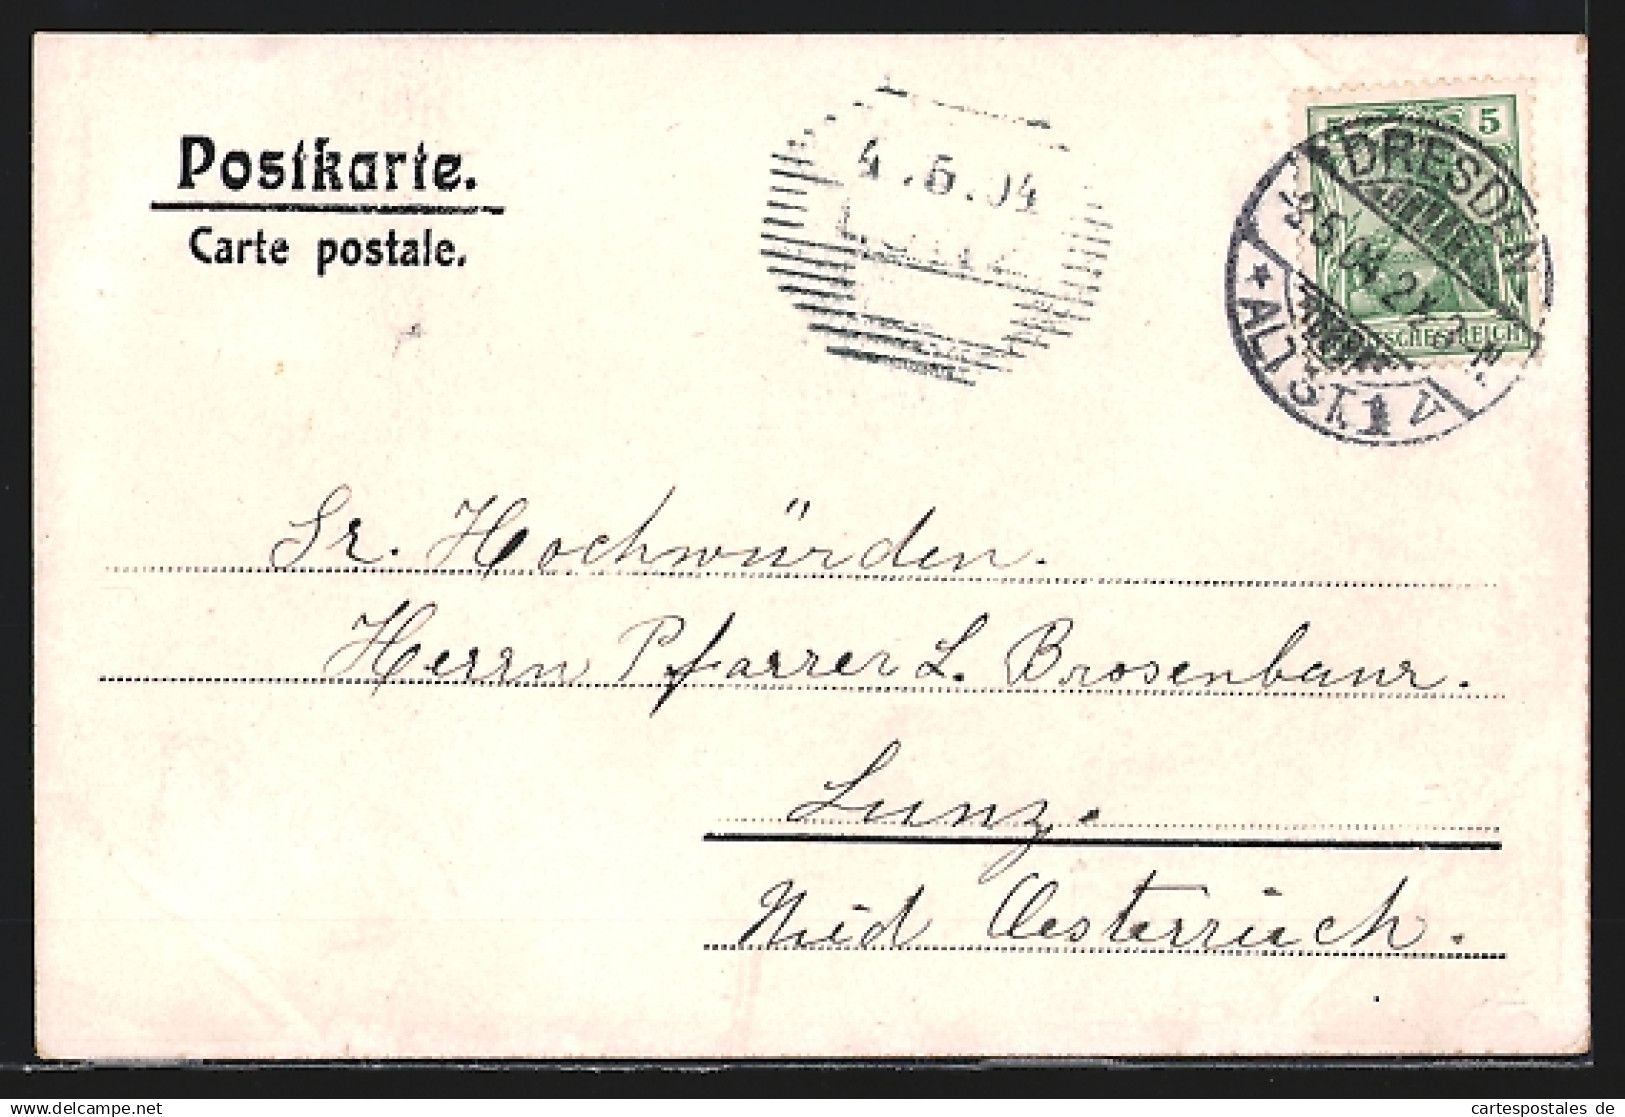 Postkarte.
Carte postale.
4.5.04
LUNZ
5 5
DRESDEN
3.5.04. 2-
* ALTST. 1 v
DEUTSCHES REICH
Sr. Hochwürden.
Herrn Pfarrer L. Brosenbaur.
Lunz.
Nied Oesterreich.
cartespostales de